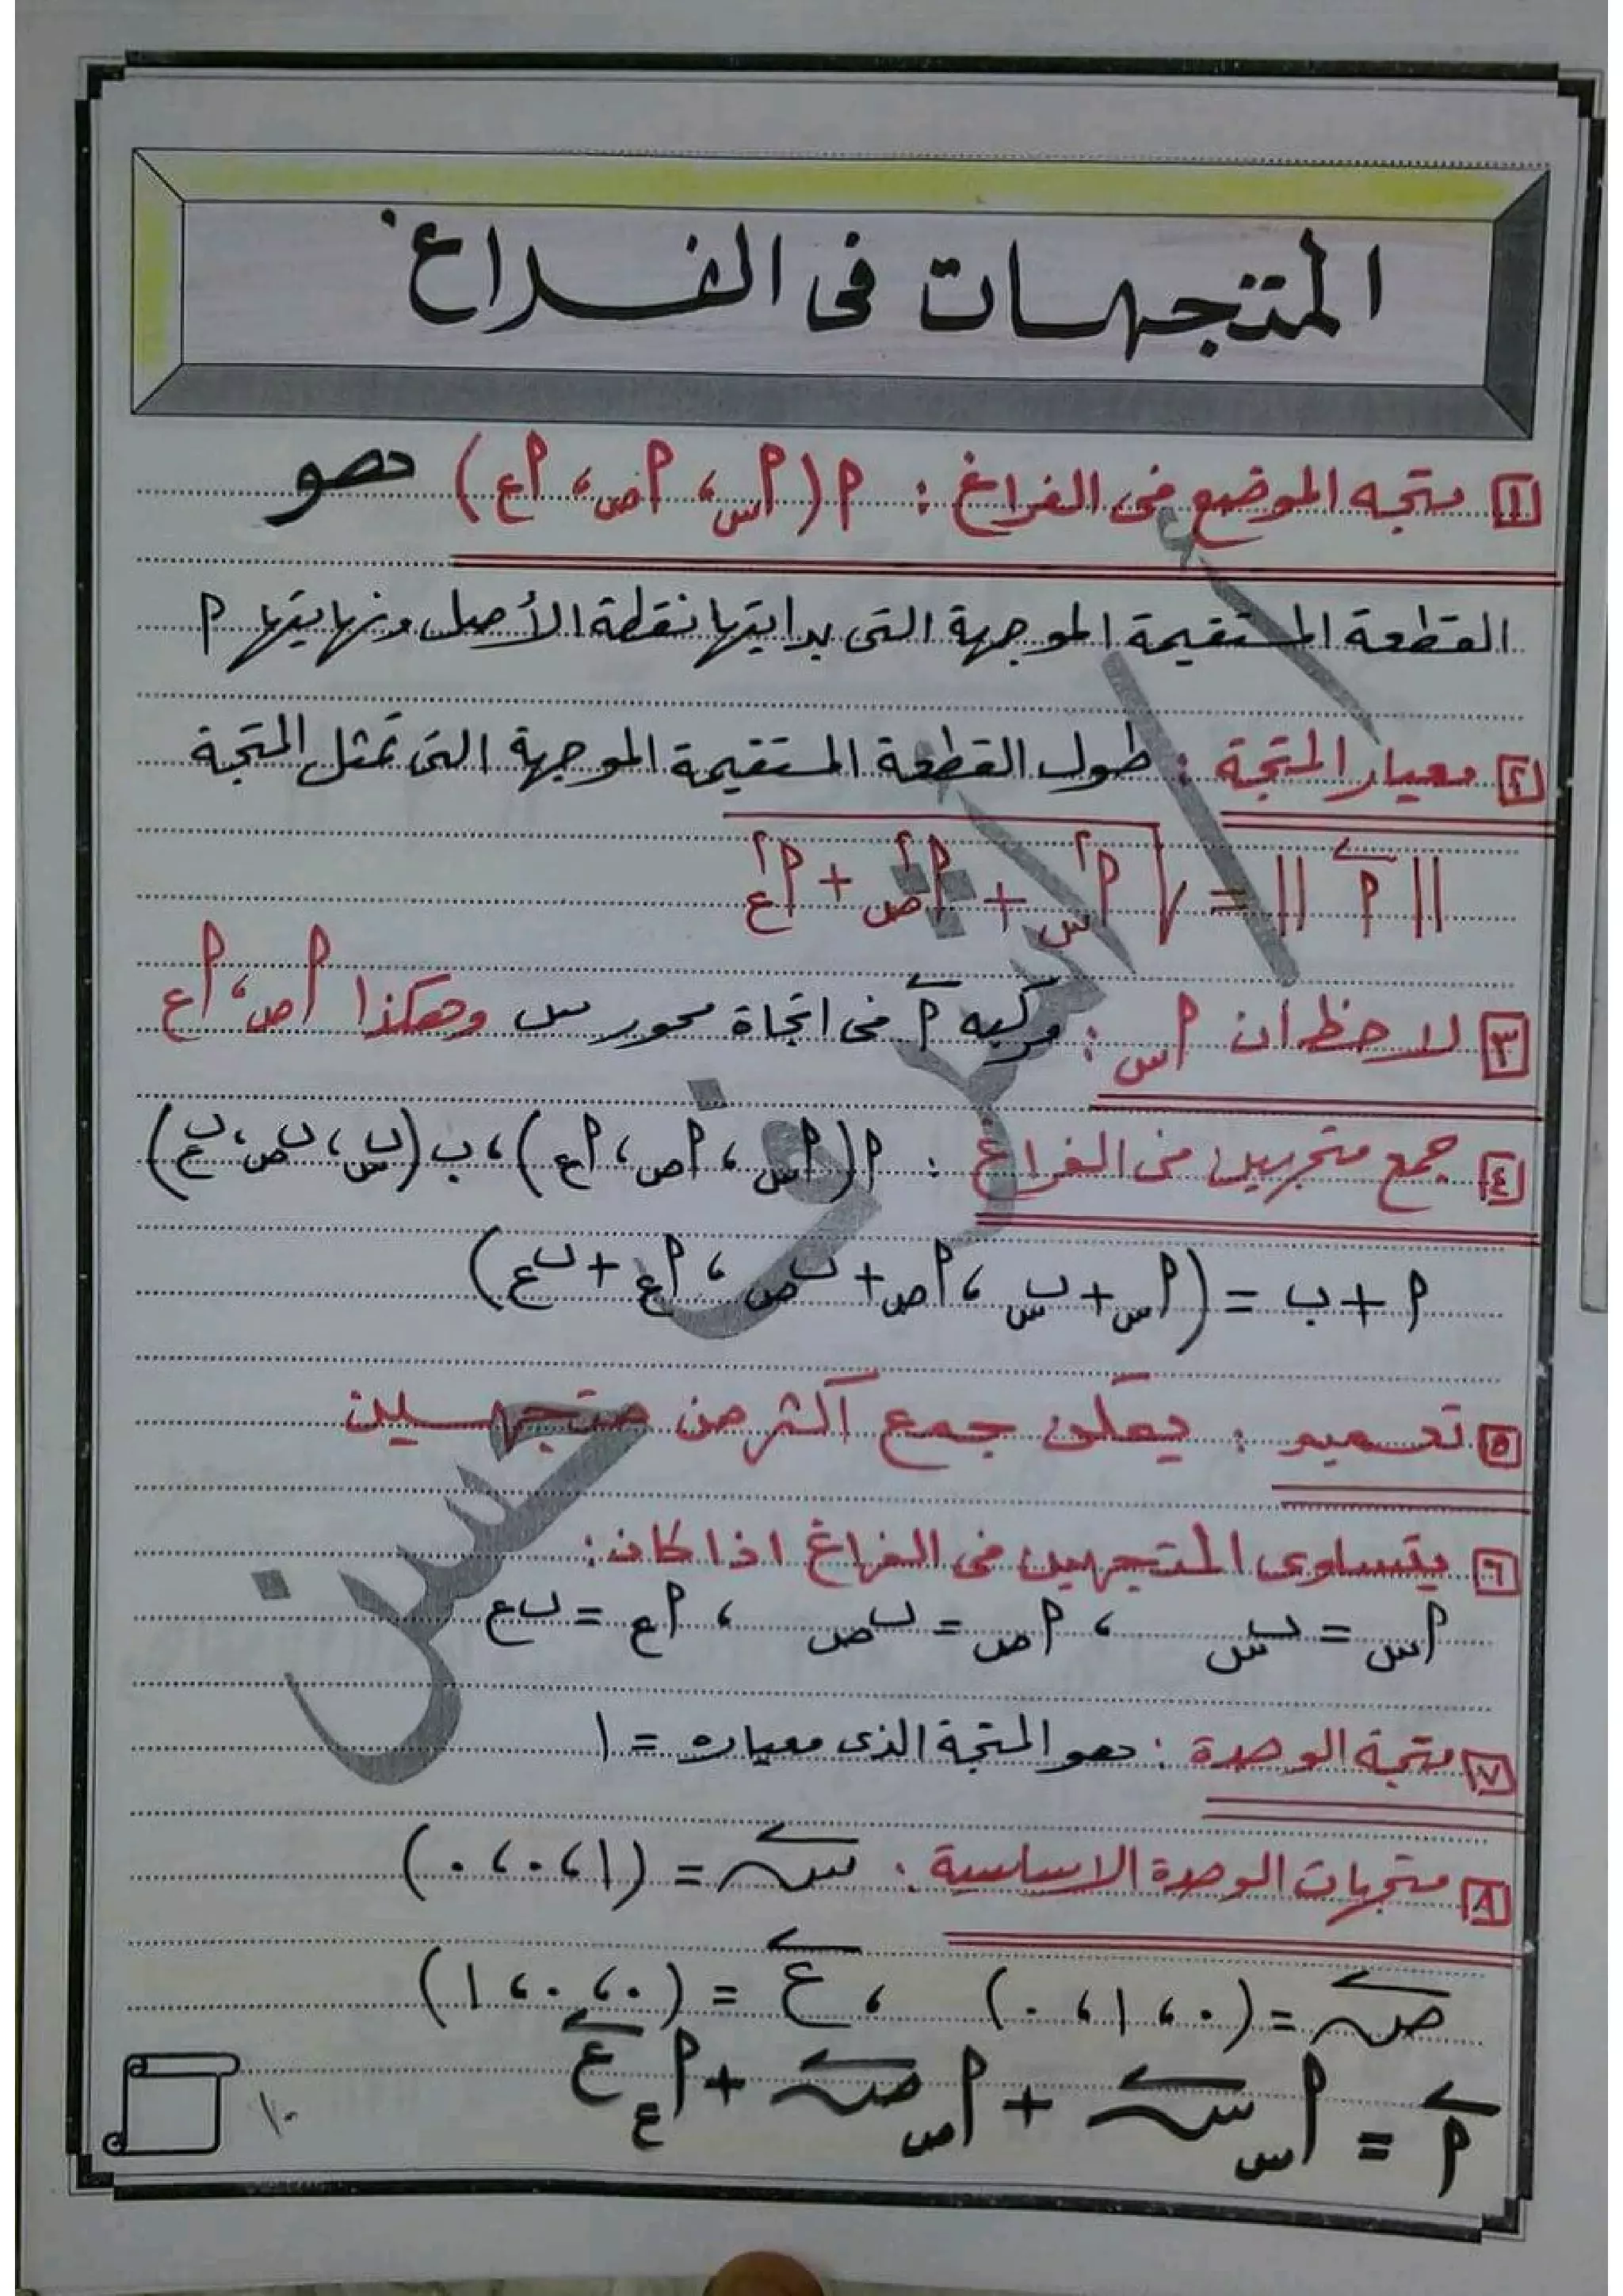 المتجهات فى الفراغ
١ متجه الموضع فى الفراغ : ٢ (٢س ، ٢ص ، ٢ع) هو
القطعة المستقيمة الموجهة التى بدايتها نقطة الأصل ونهايتها ٢
٢ معيار المتجة : طول القطعة المستقيمة الموجهة التى تمثل المتجة
|| ٢ || = √ ٢س٢ + ٢ص٢ + ٢ع٢
٣ لاحظ أن ٢س : مركبه ٢ فى اتجاة محور س وهكذا ٢ص ، ٢ع
٤ جمع متجهين فى الفراغ : ٢ (٢س ، ٢ص ، ٢ع) ، ب (بس ، بص ، بع)
٢ + ب = (٢س + بس ، ٢ص + بص ، ٢ع + بع)
٥ تعميم : يمكن جمع أكثر من متجهين
٦ يتساوى المتجهين فى الفراغ اذا كان :
٢س = بس ، ٢ص = بص ، ٢ع = بع
٧ متجة الوحدة : هو المتجة الذى معياره = ١
٨ متجهات الوحدة الاساسية : س = (١ ، ٠ ، ٠)
ص = (٠ ، ١ ، ٠) ، ع = (٠ ، ٠ ، ١)
٢ = ٢س س + ٢ص ص + ٢ع ع
١٠